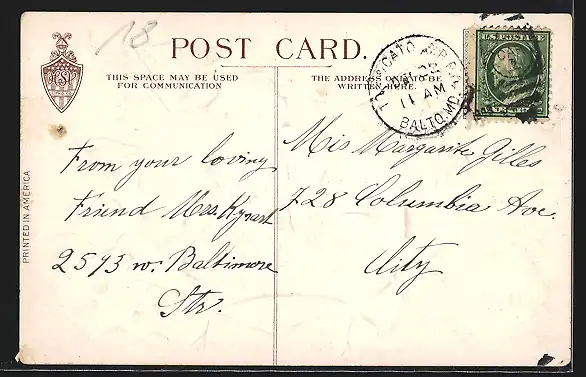 18
POST CARD.
THIS SPACE MAY BE USED
FOR COMMUNICATION
THE ADDRESS ONLY TO BE
WRITTEN HERE.
11 AM
BALTO. MD.
U.S. POSTAGE
PRINTED IN AMERICA
From your loving
Friend Mrs.
2593 w. Baltimore
Str.
Mis Margarite Gilles
728 Columbia Ave.
City